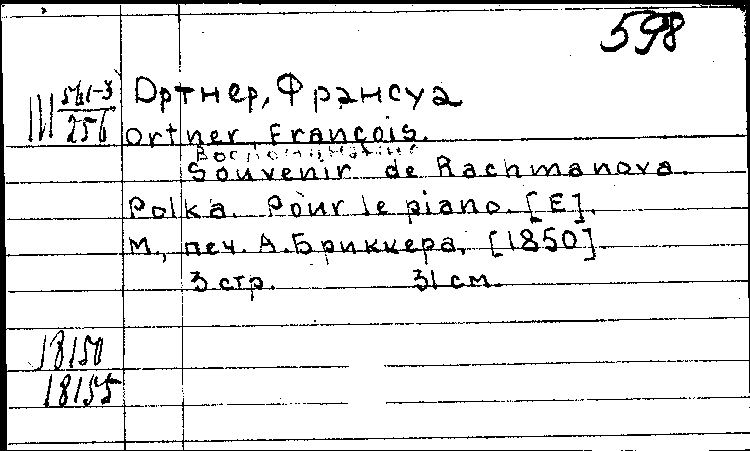 598
Ортнер, Франсуа
Ortner, Français.
Воспоминание
Souvenir de Rachmanova.
Polka. Pour le piano. [E].
М., печ. А. Бриккера, [1850].
3 стр. 31 см.
18150
18155